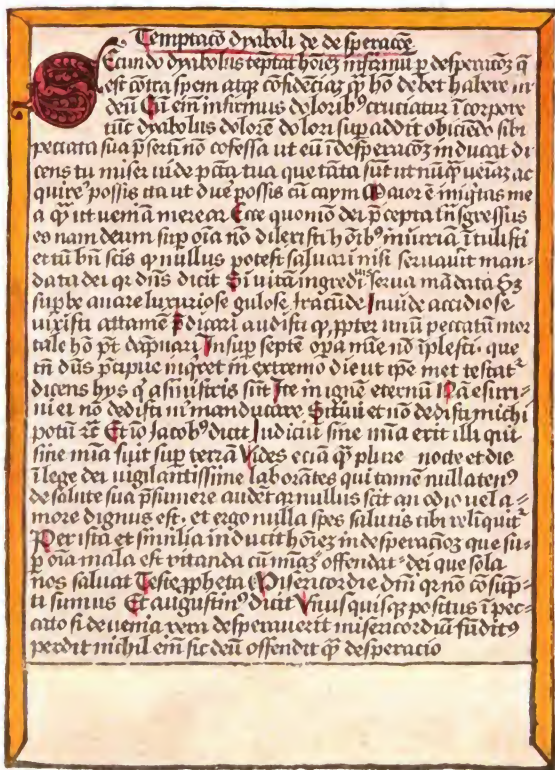 Temptaco dyaboli de desperacoe
Secundo dyabolus teptat hoiez infirmu p desperacoez q
est cotra spem atqz cofidecia q ho debet habere in
deu Cu em infirmus dolorib9 cruciatur i corpore
tuc dyabolus dolore dolori sup addit obiciedo sibi
peccata sua p serti no cofessa ut eu i desperacoez inducat di
cens tu miser vide pcta tua que tata sut ut nuq veia ac
quire possis ita ut due possis cu caym Maior e iniqtas me
a q ut venia merear Ecce quomo dei pcepta tnsgressus
es nam deum sup oia no dilexisti hoib9 iniuria itulisti
et tu bn scis q nullus potest salvari nisi servavit man-
data dei qr dns dicit Si vis ad vita ingredi serva madata Sz
supbe avare luxuriose gulose iracude Invide accidiose
vixisti attame Pdicari audisti q ppter unu peccatu mor
tale ho pt dapnari Insup septe opa mie no iplesti que
tn dus pcipue inqret in extremo die ut ipe met testat
dicens hys q a sinistris sut Ite in igne eternu Na esuri-
vi et no dedisti m manducare Sitivi et no dedisti michi
potu rc Et io Jacob9 dicit Judiciu sine mia erit illi qui
sine mia fuit sup terra Vides ecia q plure nocte et die
i lege dei vigilantissime laborates qui tame nullaten9
de salute sua psumere audet qr nullus scit an odio vel a=
more dignus est. et ergo nulla spes salutis tibi relinquit
Per ista et similia inducit hoiez in desperacoez que su-
p oia mala est vitanda cu miaz offendat dei que sola
nos salvat Teste ppheta Misericordie dni qr no cosup-
ti sumus Et augustin9 dicit Unusquisqz positus i pec-
cato si de venia vera desperaverit misericordia fudit9
perdit nichil em sic deu offendit q desperacio